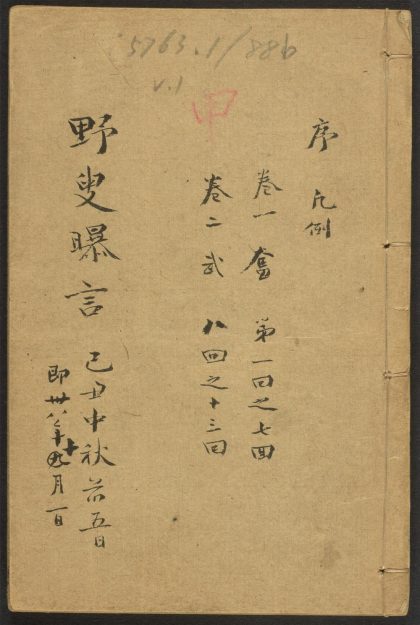 5763.1/886
v.1
序 凡例
卷一 奮 第一回之七回
卷二 武 八回之十三回
甲
野叟曝言 己丑中秋前五日
即卅八年十月一日